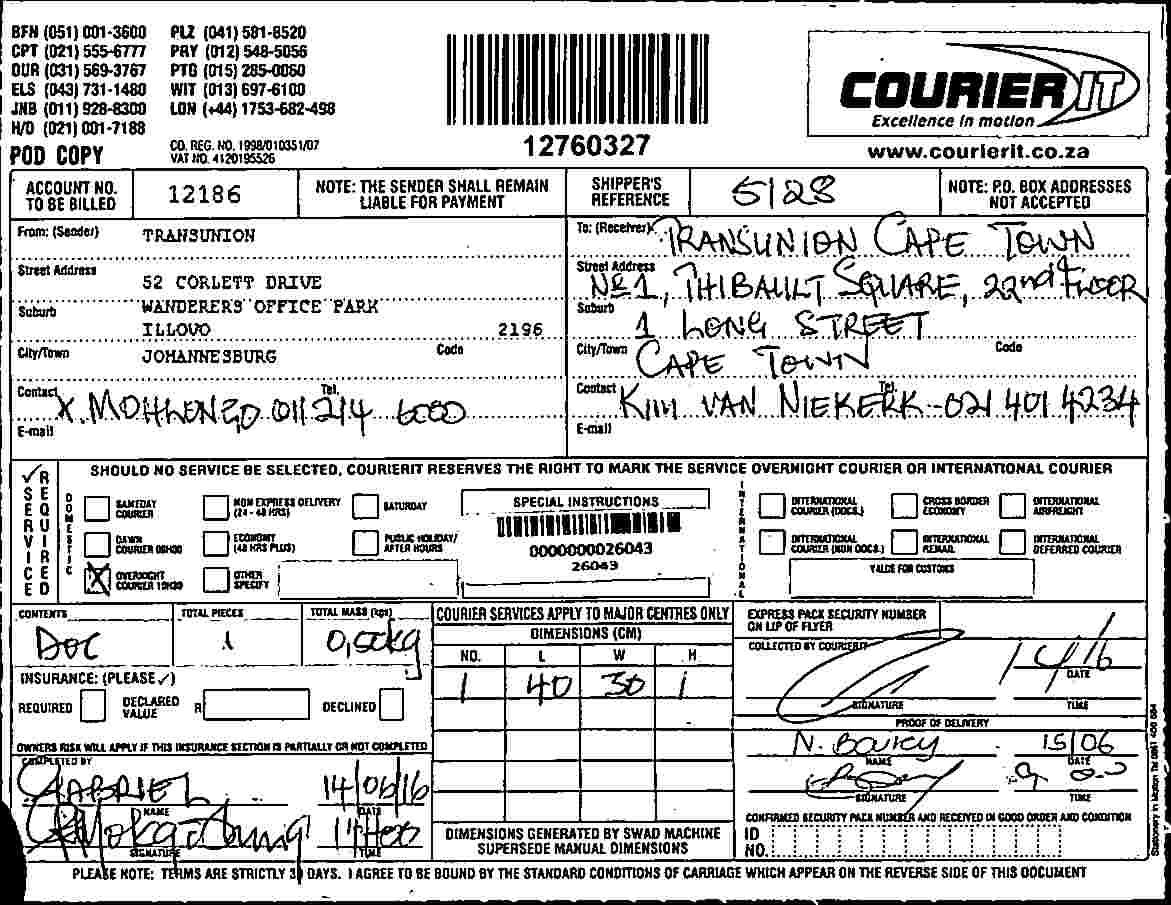 BFN (051) 001-3600 PLZ (041) 581-8520
CPT (021) 555-6777 PRY (012) 548-5056
DUR (031) 569-3767 PTG (015) 285-0060
ELS (043) 731-1480 WIT (013) 697-6100
JNB (011) 928-8300 LON (+44) 1753-682-498
H/O (021) 001-7188
POD COPY
CO. REG. NO. 1998/010351/07
VAT NO. 4120195526
12760327
COURIER IT
Excellence in motion
www.courierit.co.za
ACCOUNT NO. TO BE BILLED 12186
NOTE: THE SENDER SHALL REMAIN LIABLE FOR PAYMENT
SHIPPER'S REFERENCE 5128
NOTE: P.O. BOX ADDRESSES NOT ACCEPTED
From: (Sender) TRANSUNION
Street Address 52 CORLETT DRIVE
Suburb WANDERERS OFFICE PARK
ILLOVO 2196
City/Town JOHANNESBURG Code
Contact Tel. 011 214 6000
E-mail
To: (Receiver) TRANSUNION CAPE TOWN
Street Address No 1, THIBAULT SQUARE, 22nd FLOOR
Suburb 1 LONG STREET
City/Town CAPE TOWN Code
Contact KIM VAN NIEKERK Tel. 021 401 4234
E-mail
SERVICE REQUIRED
SHOULD NO SERVICE BE SELECTED, COURIERIT RESERVES THE RIGHT TO MARK THE SERVICE OVERNIGHT COURIER OR INTERNATIONAL COURIER
DOMESTIC
SAMEDAY COURIER
NON EXPRESS DELIVERY (24 - 48 HRS)
SATURDAY
DAWN COURIER 08H00
ECONOMY (48 HRS PLUS)
PUBLIC HOLIDAY/ AFTER HOURS
X OVERNIGHT COURIER 10H30
OTHER SPECIFY
SPECIAL INSTRUCTIONS
0000000026043
26043
INTERNATIONAL
INTERNATIONAL COURIER (DOCS.)
CROSS BORDER ECONOMY
INTERNATIONAL AIRFREIGHT
INTERNATIONAL COURIER (NON DOCS.)
INTERNATIONAL REMAIL
INTERNATIONAL DEFERRED COURIER
VALUE FOR CUSTOMS
CONTENTS DOC
TOTAL PIECES 1
TOTAL MASS (kgs) 0,50kg
INSURANCE: (PLEASE ✓)
REQUIRED DECLARED VALUE R DECLINED
OWNERS RISK WILL APPLY IF THIS INSURANCE SECTION IS PARTIALLY OR NOT COMPLETED
COMPLETED BY
GABRIEL 14/06/16
NAME DATE
11H00
SIGNATURE TIME
COURIER SERVICES APPLY TO MAJOR CENTRES ONLY
DIMENSIONS (CM)
NO. L W H
1 40 30 1
DIMENSIONS GENERATED BY SWAD MACHINE
SUPERSEDE MANUAL DIMENSIONS
EXPRESS PACK SECURITY NUMBER
ON LIP OF FLYER
COLLECTED BY COURIERIT
DATE
SIGNATURE TIME
PROOF OF DELIVERY
15/06
NAME DATE
SIGNATURE TIME
CONFIRMED SECURITY PACK NUMBER AND RECEIVED IN GOOD ORDER AND CONDITION
ID NO.
PLEASE NOTE: TERMS ARE STRICTLY 30 DAYS. I AGREE TO BE BOUND BY THE STANDARD CONDITIONS OF CARRIAGE WHICH APPEAR ON THE REVERSE SIDE OF THIS DOCUMENT